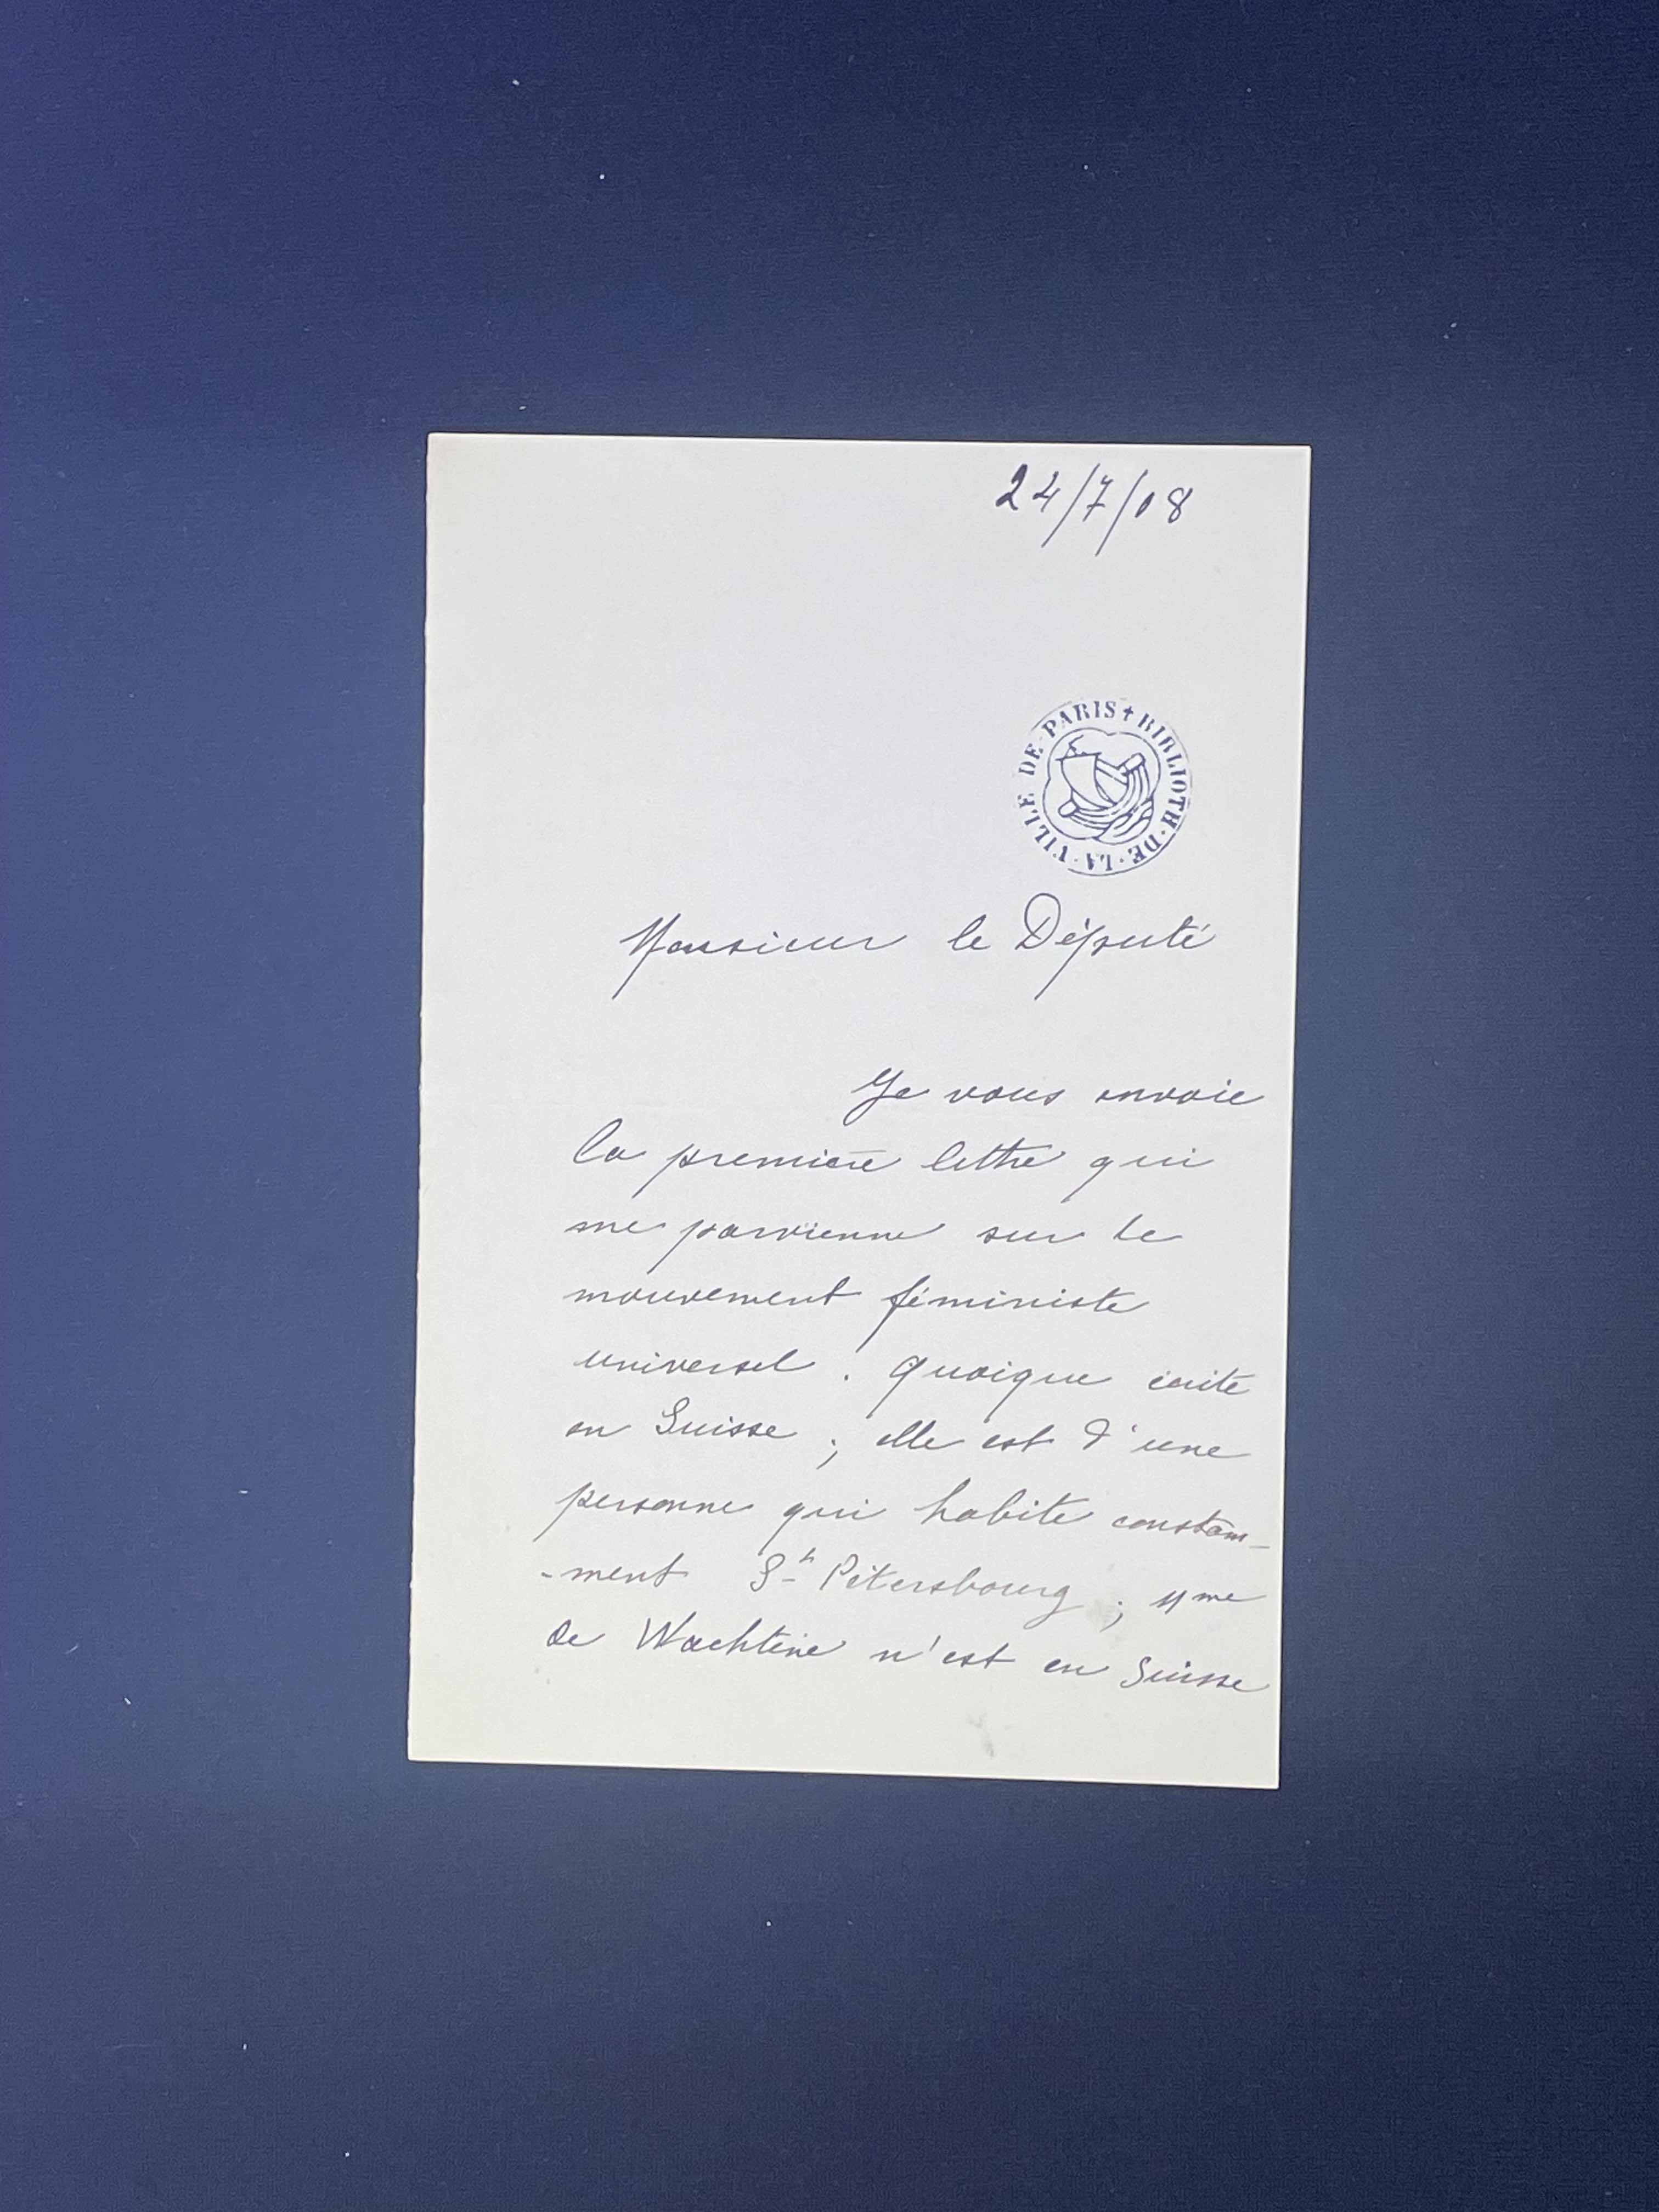 24/7/08
VILLE DE PARIS + BIBLIOTH. DE. LA.
Monsieur le Député
Je vous envoie
la première lettre qui
me parvienne sur le
mouvement féministe
universel. Quoique écrite
en Suisse; elle est d'une
personne qui habite constam-
-ment St Pétersbourg; Mme
de Wachtine n'est en Suisse